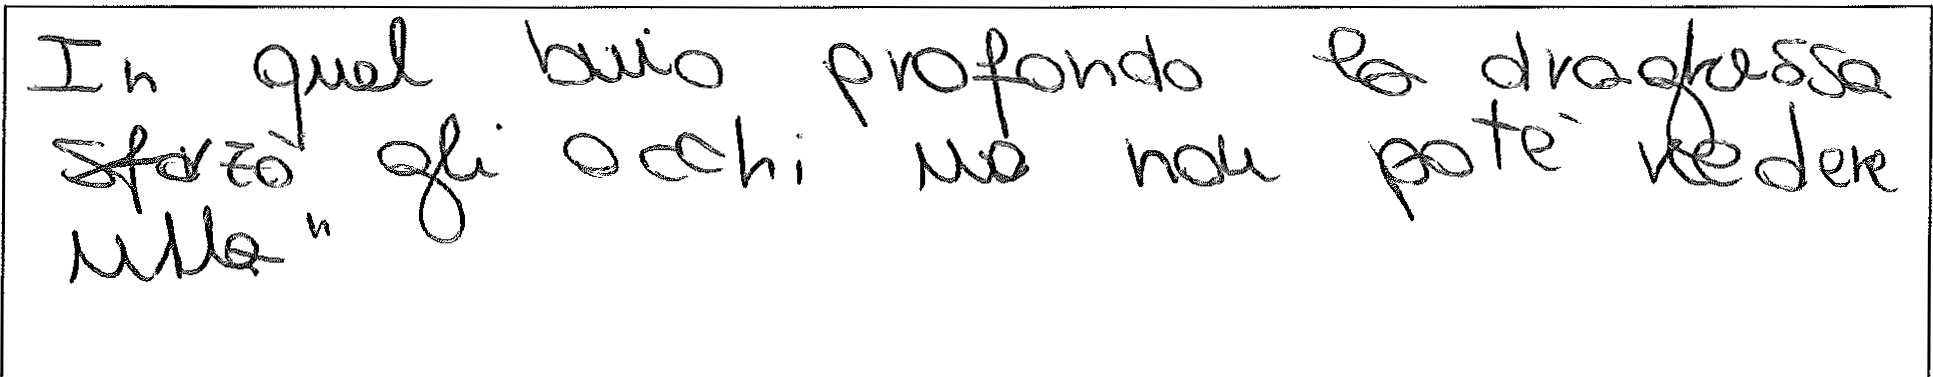 In quel buio profondo la draghessa
sforzò gli occhi ma non potè vedere
nulla"